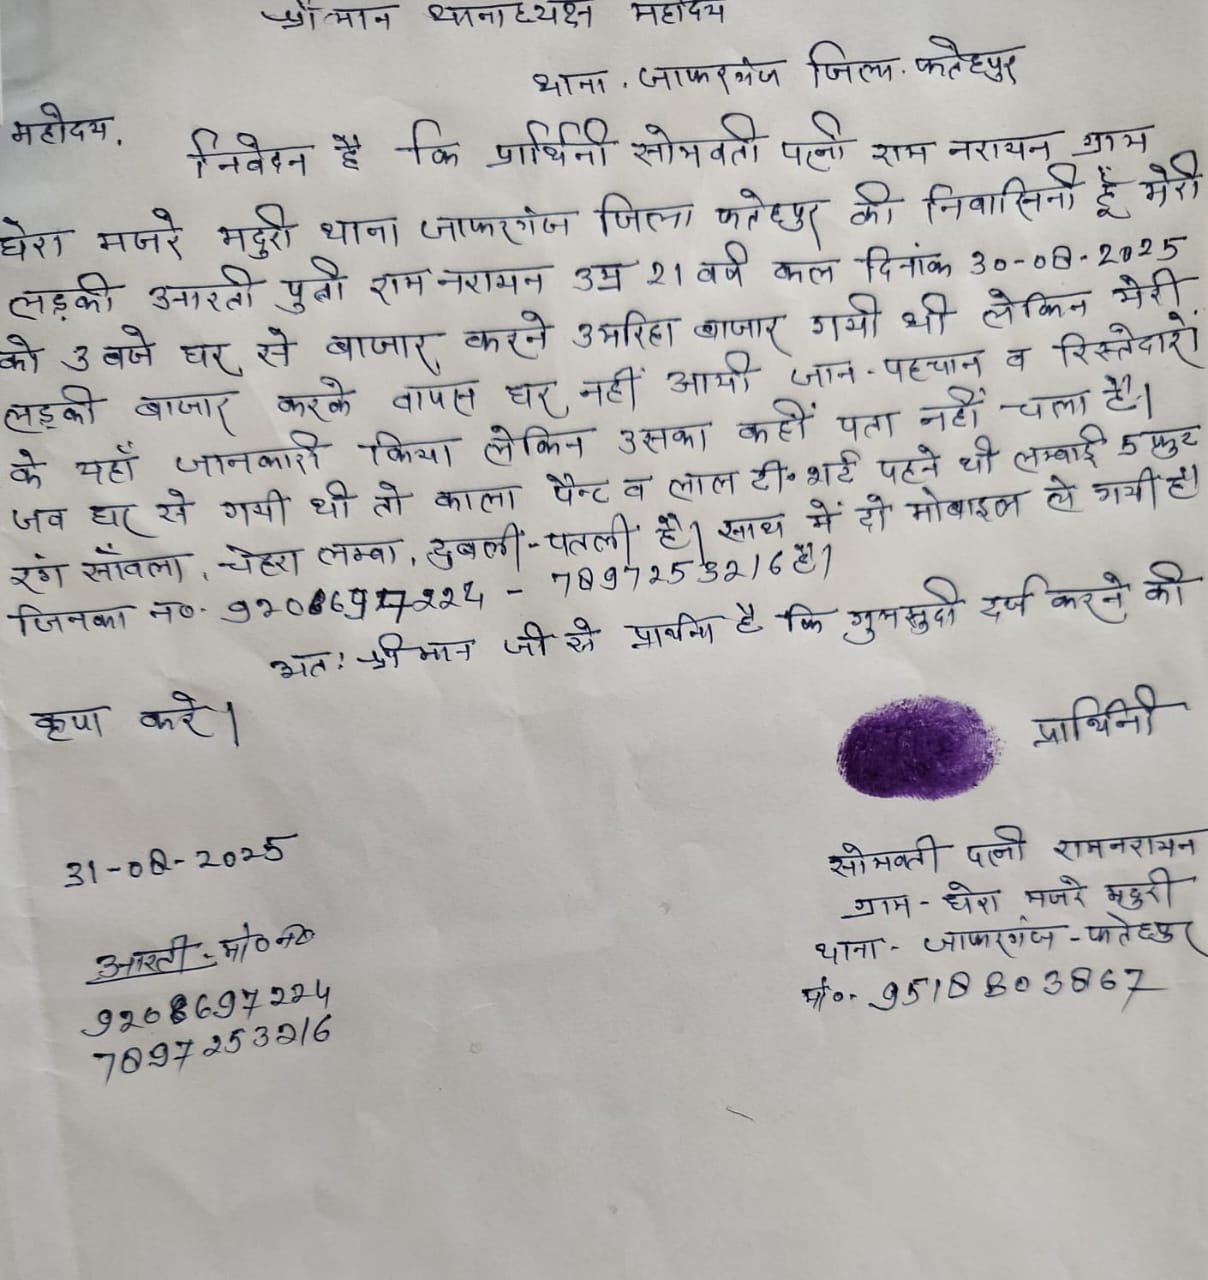 श्रीमान थानाध्यक्ष महोदय
थाना. जाफरगंज जिला. फतेहपुर
महोदय,
निवेदन है कि प्रार्थिनी सोमवती पत्नी राम नरायन ग्राम
घेरा मजरे मदुरी थाना जाफरगंज जिला फतेहपुर की निवासिनी हूँ मेरी
लड़की आरती पुत्री राम नरायन उम्र 21 वर्ष कल दिनांक 30-08-2025
को 3 बजे घर से बाजार करने अमरिहा बाजार गयी थी लेकिन मेरी
लड़की बाजार करके वापस घर नहीं आयी जान-पहचान व रिस्तेदारों
के यहाँ जानकारी किया लेकिन उसका कहीं पता नहीं चला है।
जब घर से गयी थी तो काला पैन्ट व लाल टी. शर्ट पहने थी लम्बाई 5 फुट
रंग साँवला, चेहरा लम्बा, दुबली-पतली है। साथ में दो मोबाइल ले गयी है।
जिनका न०. 9208697224 - 7897253216 है।
अतः श्रीमान जी से प्रार्थना है कि गुमसुदी दर्ज करने की
कृपा करे।
प्रार्थिनी
31-08-2025
सोमवती पत्नी रामनरायन
ग्राम- घेरा मजरे मदुरी
थाना- जाफरगंज - फतेहपुर
मो०. 9518803867
आरती - मो० न०
9208697224
7897253216